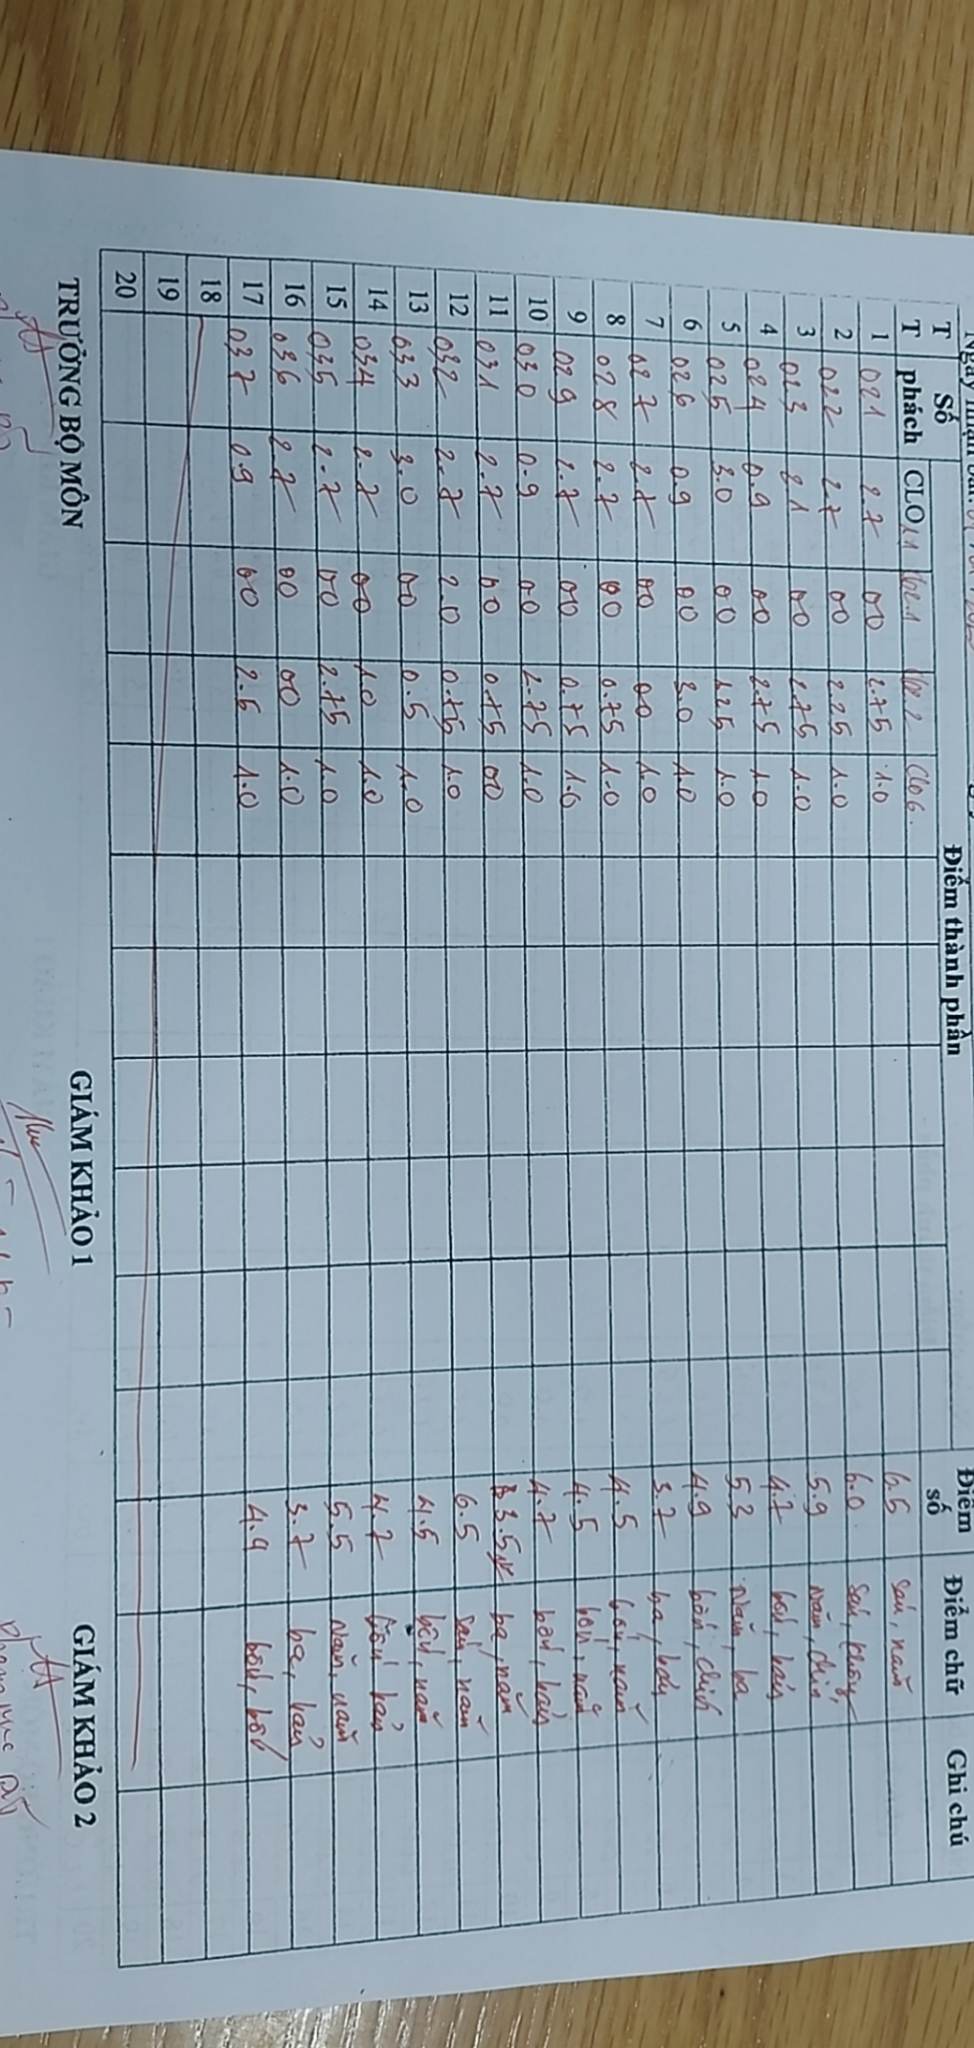 Điểm thành phần
T T Số phách CLO 1.1 Clo2.1 Clo2.2 Clo6. Điểm số Điểm chữ Ghi chú
1 021 2.7 00 2.75 1.0 6.5 sáu, năm
2 022 2.7 00 2.25 1.0 6.0 sáu, không
3 023 2.1 00 2.75 1.0 5.9 năm, chín
4 024 0.9 00 2.75 1.0 4.7 bốn, bảy
5 025 3.0 00 1.25 1.0 5.3 Năm, ba
6 026 0.9 00 3.0 1.0 4.9 bốn, chín
7 027 2.7 00 00 1.0 3.7 ba, bảy
8 028 2.7 00 0.75 1.0 4.5 bốn, năm
9 029 2.7 00 0.75 1.0 4.5 bốn, năm
10 030 0.9 00 2.75 1.0 4.7 bốn, bảy
11 031 2.7 00 0.75 00 3.5 ba, năm
12 032 2.7 2.0 0.75 1.0 6.5 sáu, năm
13 033 3.0 00 0.5 1.0 4.5 bốn, năm
14 034 2.7 00 1.0 1.0 4.7 bốn bảy
15 035 2.7 00 2.75 1.0 5.5 Năm, năm
16 036 2.7 00 00 1.0 3.7 ba, bảy
17 037 0.9 00 2.5 1.0 4.4 bốn, bốn
18
19
20
TRƯỞNG BỘ MÔN GIÁM KHẢO 1 GIÁM KHẢO 2